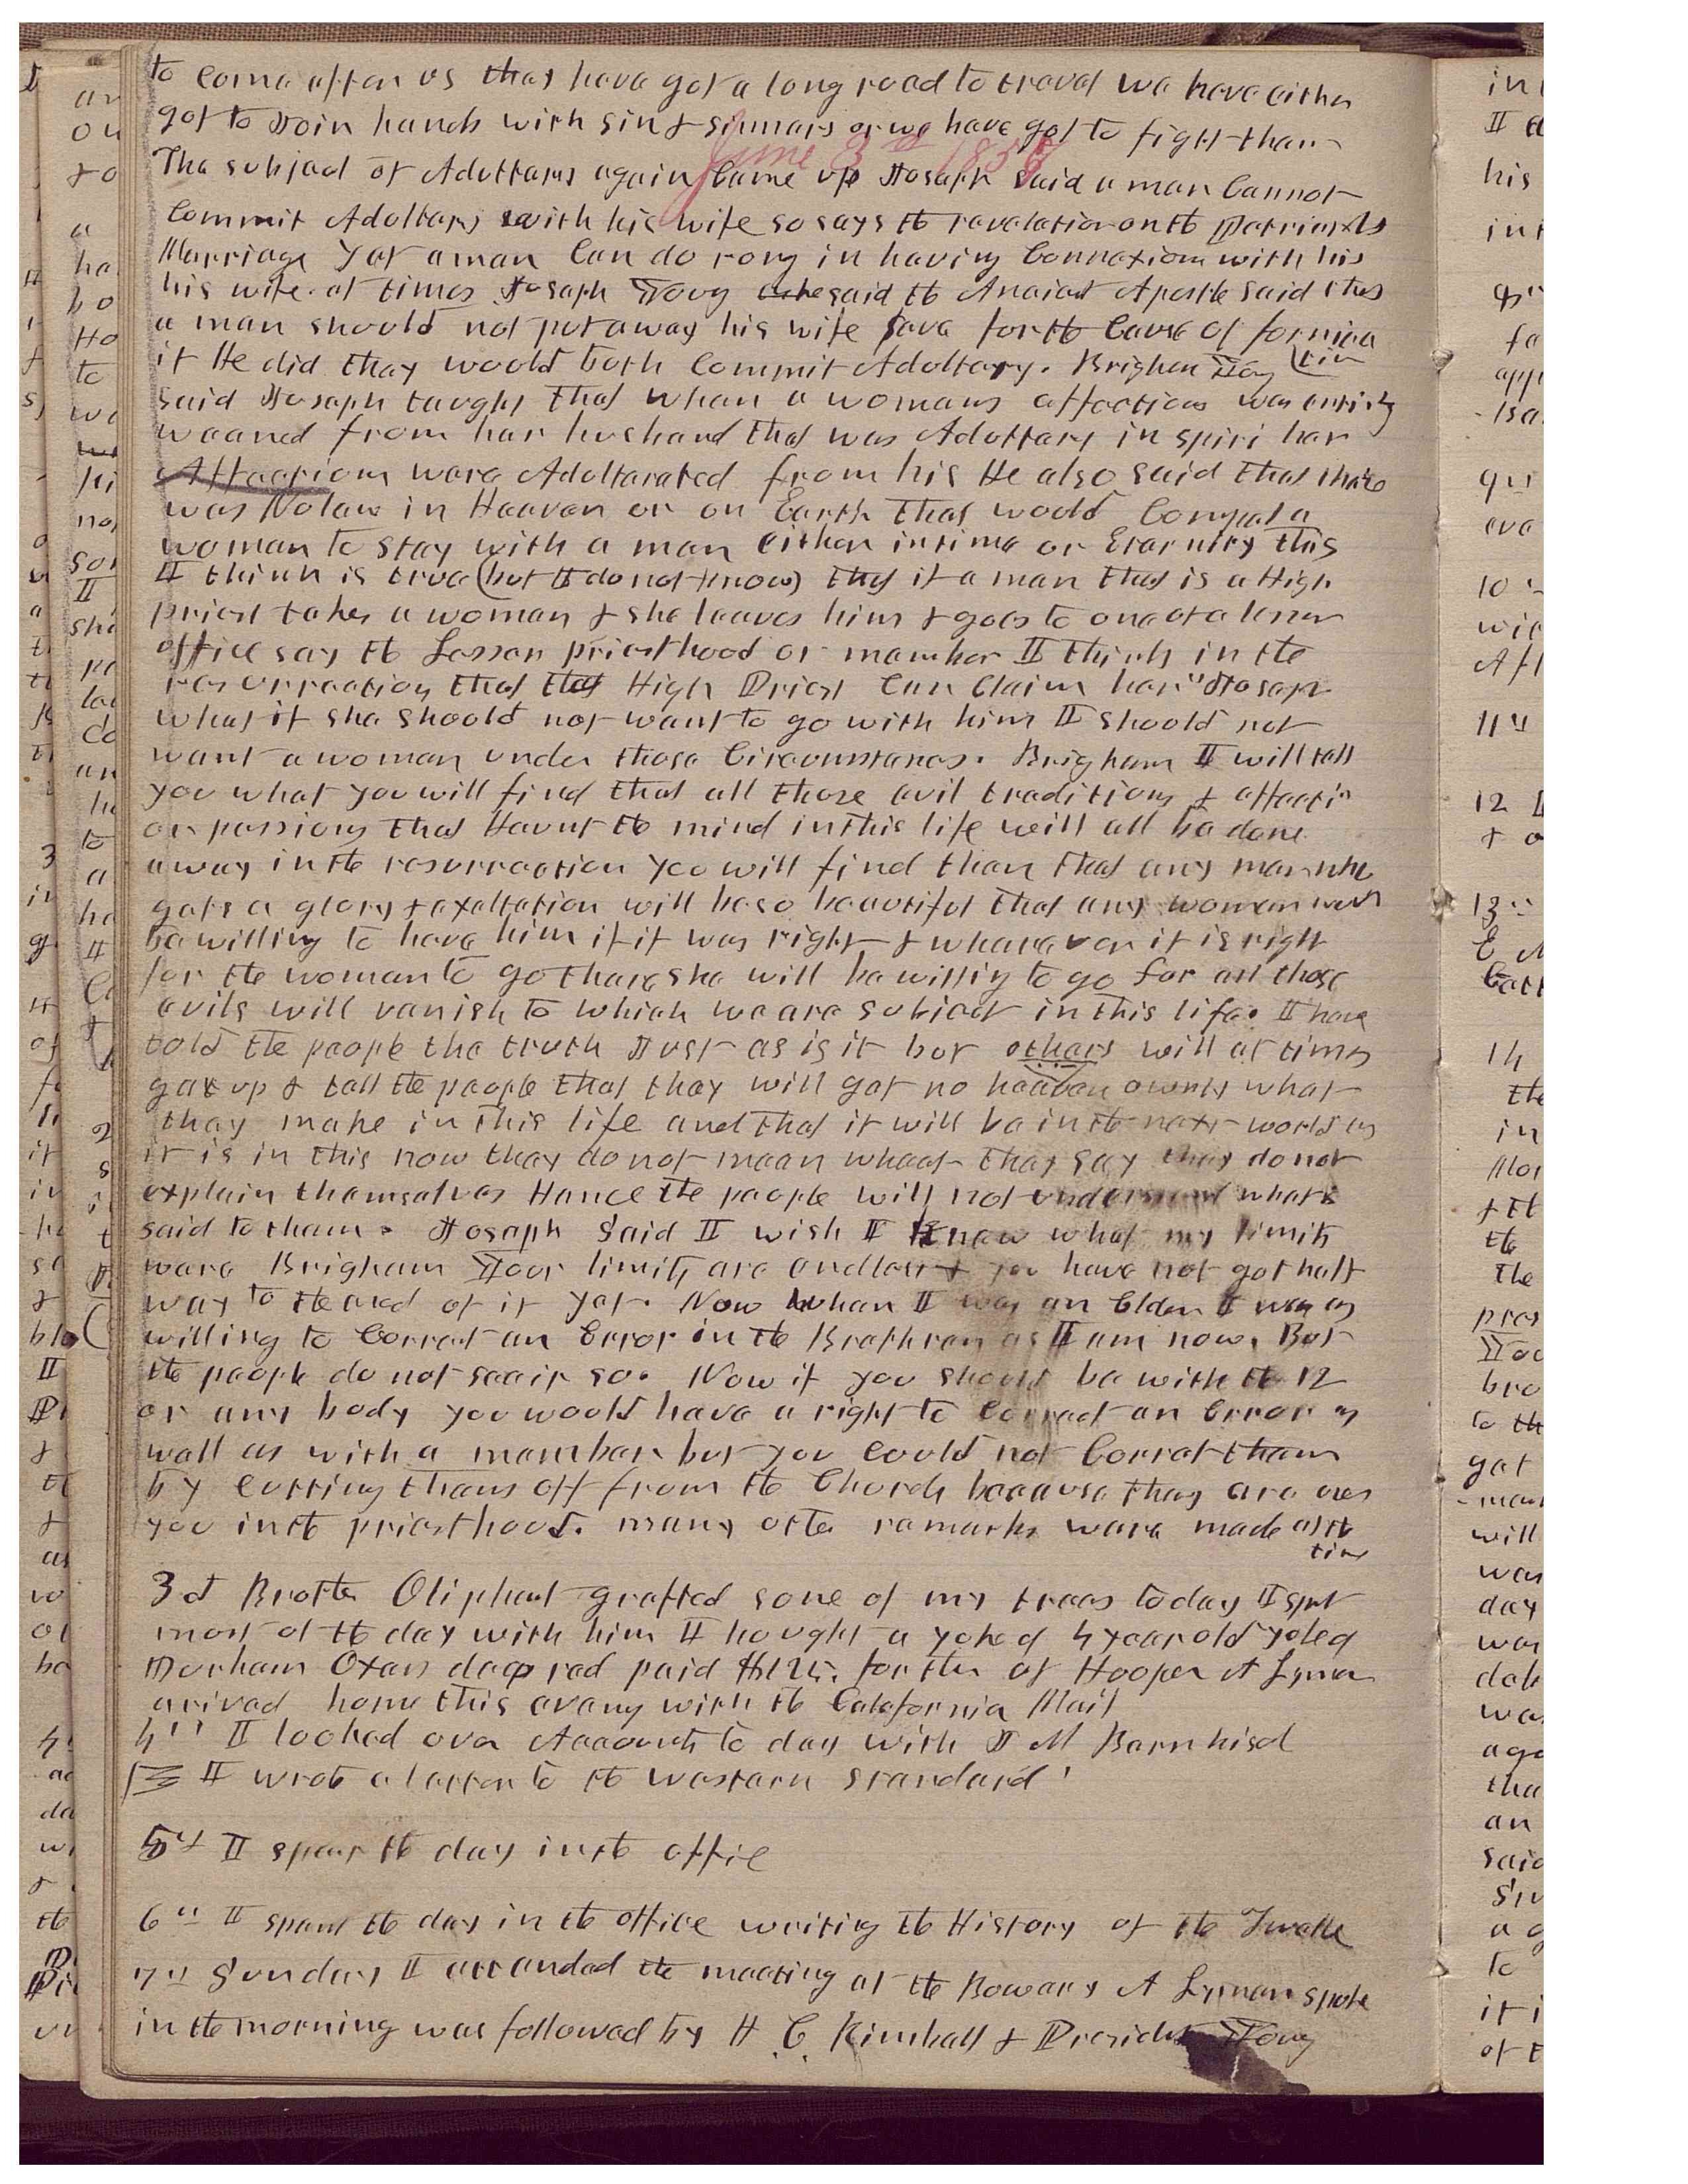 to come after us that have got a long road to travel we have either
got to Join hands with sin & sinners or we have got to fight them
June 3rd 1857
The subject of Adultery again came up Joseph said a man Cannot
Commit Adultery with his wife so says the revelation on the Patriarchal
Marriage yet a man Can do rong in having Connexion with his
his wife at times Joseph Young said the Ancient Apostle said that
a man should not put away his wife save for the Cause of fornica
tion
if He did they would both Commit Adultery. Brigham Young
said Joseph taught that when a womans affections was entirely
weaned from her husband that was Adultery in spirit her
Affections were Adulterated from his He also said that there
was No law in Heaven or on Earth that would Compel a
woman to stay with a man either in time or Eternity this
I think is true (but I do not know) that if a man that is a High
priest takes a woman & she leaves him & goes to one of a lesser
office say the Lesser priesthood or member I think in the
resurrection that that High Priest Can Claim her" Joseph
what if she should not want to go with him I should not
want a woman under those Circumstances. Brigham I will tell
you what you will find that all those evil traditions & affectin
or passions that Haunt the mind in this life will all be done
away in the resurrection you will find then that any man who
gets a glory & exaltation will be so beautiful that any woman will
be willing to have him if it was right & whenever it is right
for the woman to go there she will be willing to go for all those
evils will vanish to which we are subject in this life. I have
told the people the truth Just as is it but others will at times
get up & tell the people that they will get no heaven ownly what
they make in this life and that it will be in the next world as
it is in this now they do not mean whaat they say they do not
explain themselves Hence the people will not understand what is
said to them. Joseph Said I wish I knew what my limits
were Brigham Your limits are endless & you have not got half
way to the end of it yet. Now when I was an Elder I was as
willing to Correct an Error in the Brethren as I am now. But
the people do not see it so. Now if you should be with the 12
or any body you would have a right to Correct an Error as
well as with a member but you could not Corret them
by cutting them off from the Church because they are over
you in the priesthood. many other remarks were made at the
time
3d Brother Oliphant grafted some of my trees today I spnt
most of the day with him I bought a yoke of 4 year old yoked
Durham Oxen deep red paid $125. for them of Hooper A Lyman
arived home this eveng with the California Mail
4" I looked over Accounts to day with J M Barnhisel
I wrote a letter to the western Standard
5th I spent the day in the offic
6th I spent the day in the office writing the History of the Twelve
7th Sunday I attended the meeting at the Bowery A Lyman spoke
in the morning was followed by H. C. Kimball & President Young